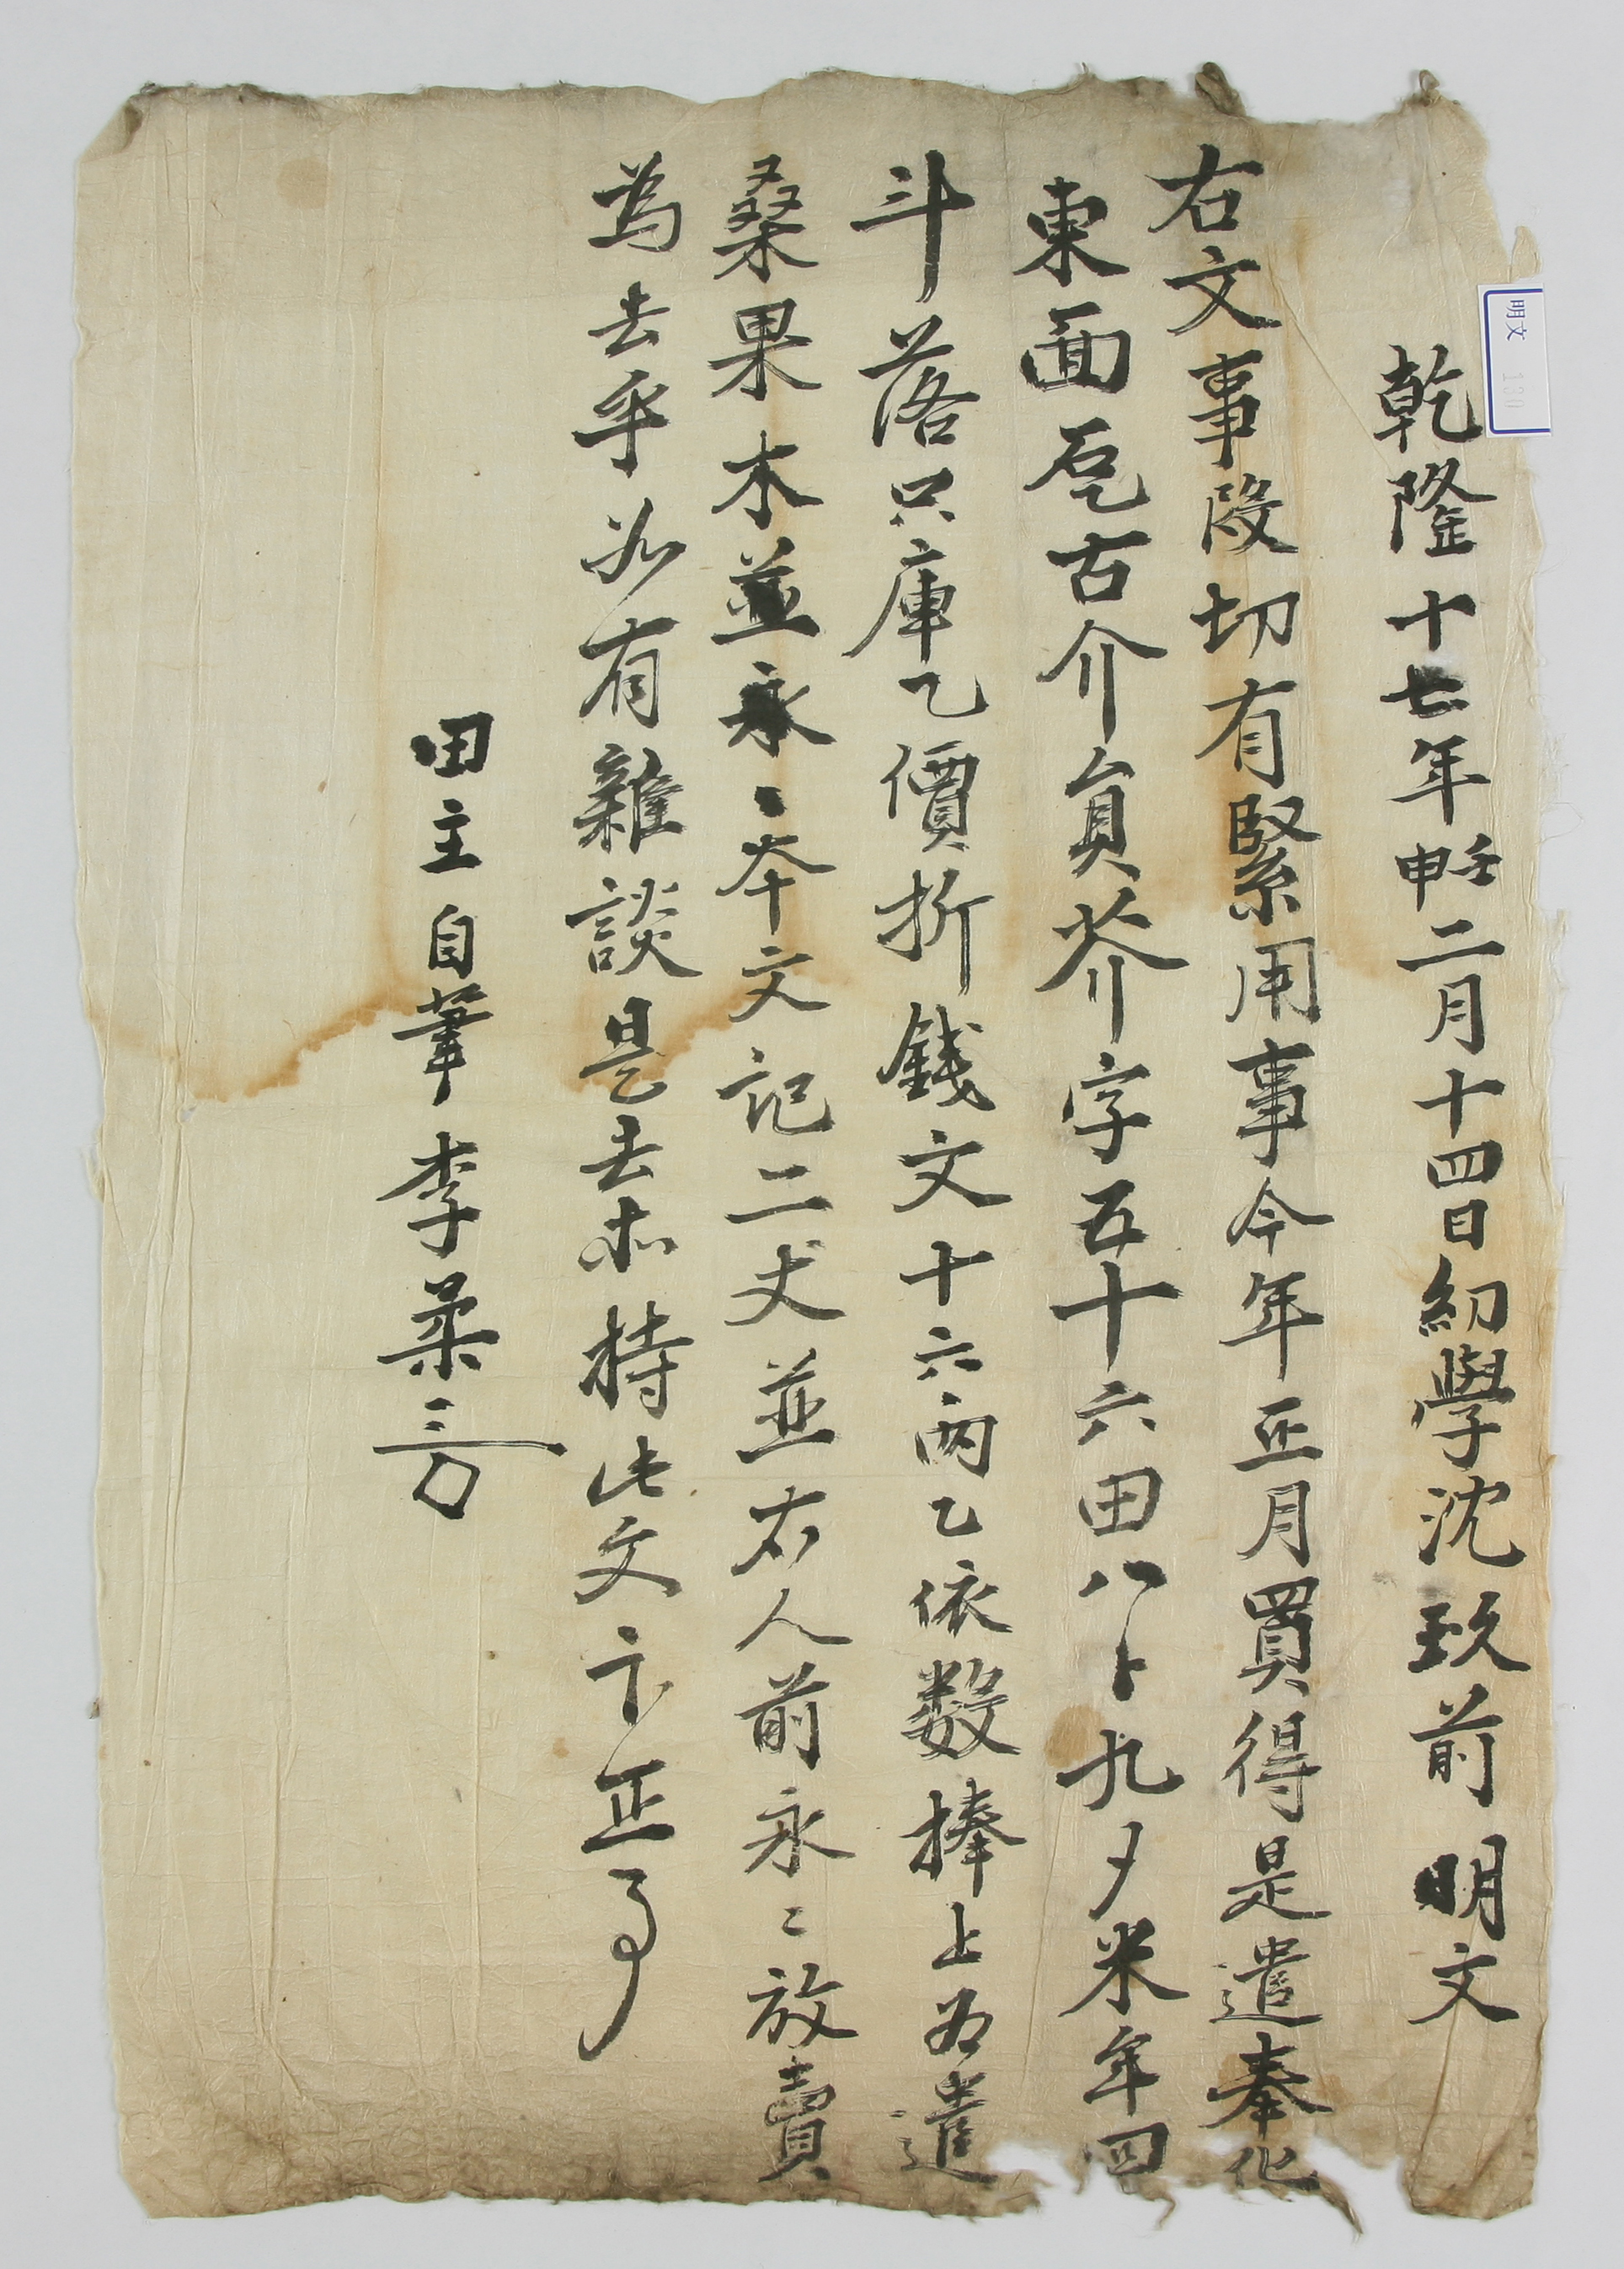 乾隆十七年壬申二月十四日幼學沈致前明文
右文事段切有緊用事今年正月買得是遣奉化
東面乭古介員芥字五十六田八卜九夕米年四
斗落只庫乙價折錢文十六兩乙依數捧上為遣
桑果木並永〻本文記二丈並右人前永〻放賣
為去乎如有雜談是去等持此文卞正事
田主自筆李柔三
明文 130